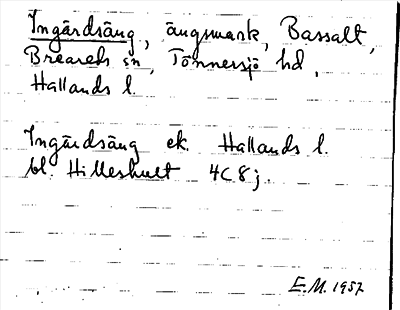 Ingärdsäng, ängsmark, Bassalt,
Breareds sn, Tönnersjö hd,
Hallands l.
Ingärdsäng ek. Hallands l.
bl. Hilleshult 4C8j.
E.M. 1957